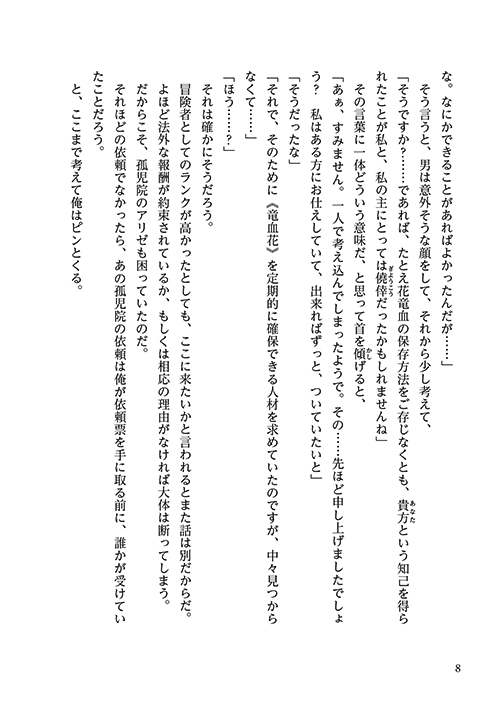 な。なにかできることがあればよかったんだが……」
そう言うと、男は意外そうな顔をして、それから少し考えて、
「そうですか？……であれば、たとえ花竜血の保存方法をご存じなくとも、貴方という知己を得ら
れたことが私と、私の主にとっては僥倖だったかもしれませんね」
その言葉に一体どういう意味だ、と思って首を傾げると、
「あぁ、すみません。一人で考え込んでしまったようで。その……先ほど申し上げましたでしょ
う？　私はある方にお仕えしていて、出来ればずっと、ついていたいと」
「そうだったな」
「それで、そのために《竜血花》を定期的に確保できる人材を求めていたのですが、中々見つから
なくて……」
「ほう……？」
それは確かにそうだろう。
冒険者としてのランクが高かったとしても、ここに来たいかと言われるとまた話は別だからだ。
よほど法外な報酬が約束されているか、もしくは相応の理由がなければ大体は断ってしまう。
だからこそ、孤児院のアリゼも困っていたのだ。
それほどの依頼でなかったら、あの孤児院の依頼は俺が依頼票を手に取る前に、誰かが受けてい
たことだろう。
と、ここまで考えて俺はピンとくる。
あなた
ぎょうこう
かし
8